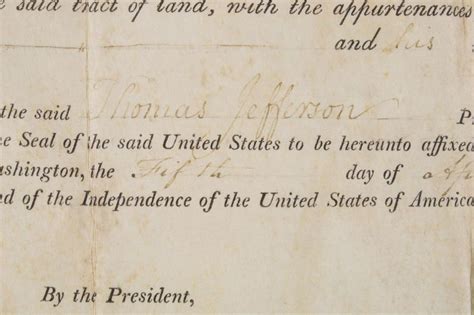 e said tract of land, with the appurtenances
and his
the said Thomas Jefferson P
e Seal of the said United States to be hereunto affixed
ashington, the Fifth day of Ap
d of the Independence of the United States of America
By the President,